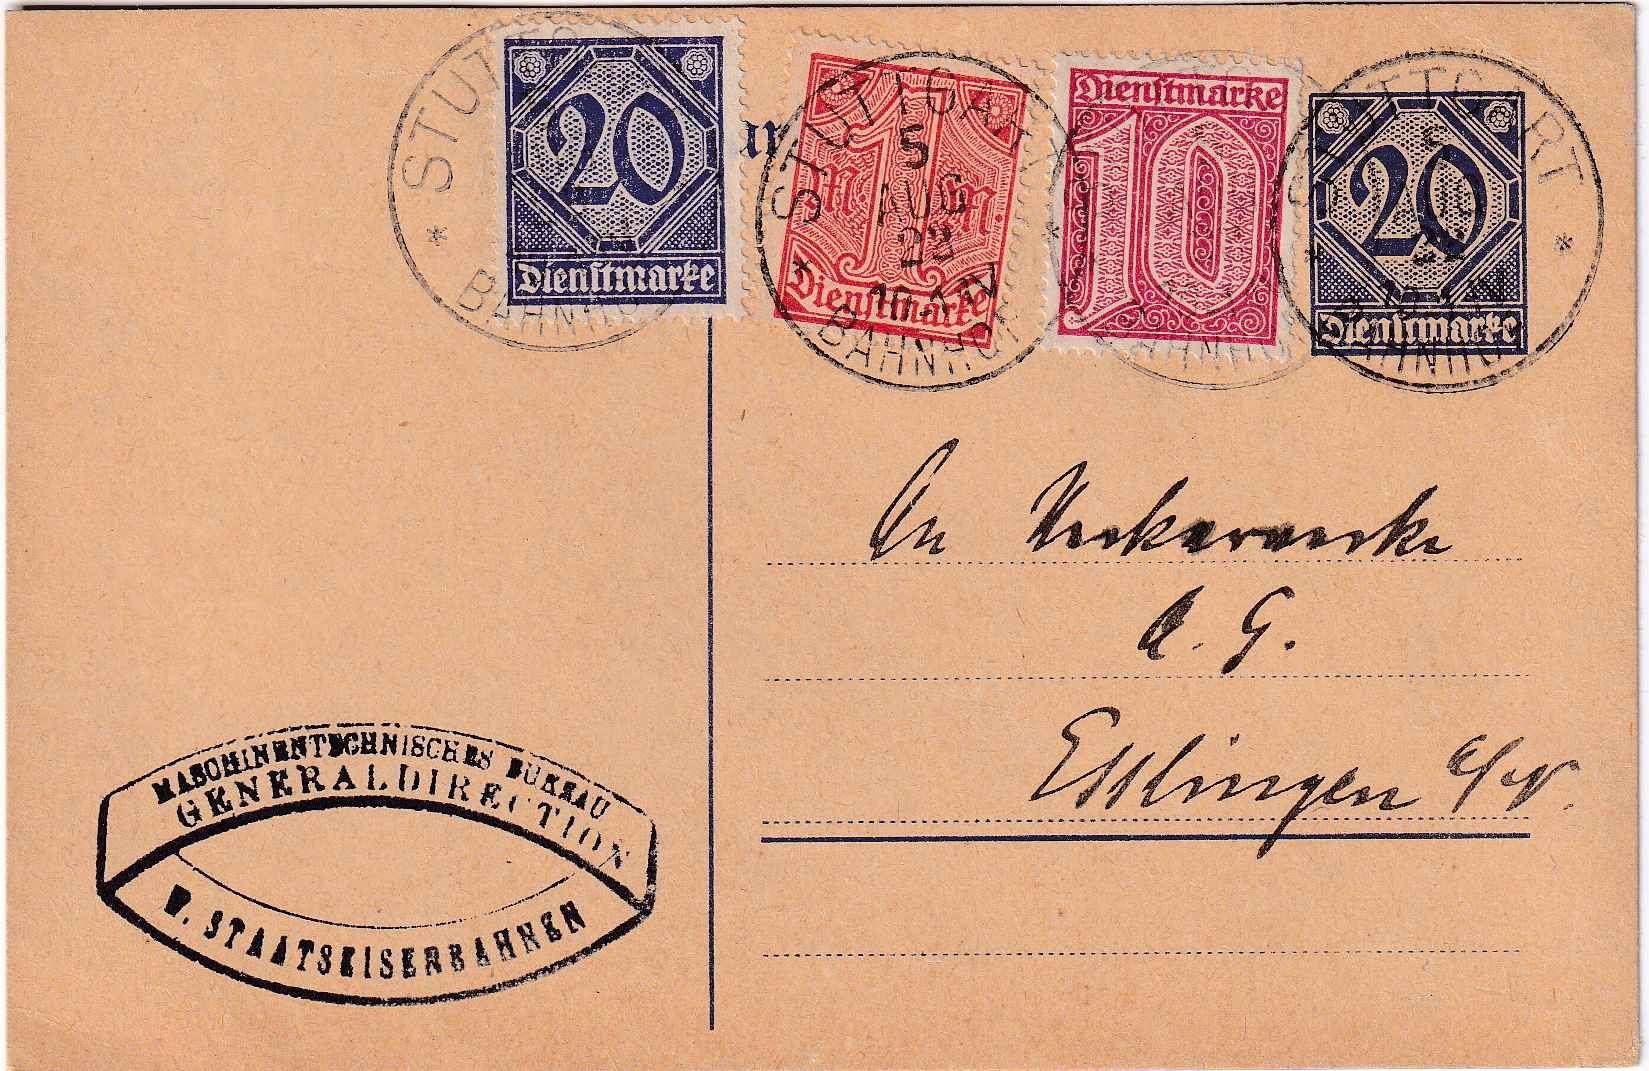 20
Dienstmarke
STUTTGART
5
AUG
22
BAHNHOF
1
Mark
Dienstmarke
Dienstmarke
10
STUTTGART
BAHNHOF
20
Dienstmarke
An Neckarwerke
A. G.
Esslingen a/N.
MASCHINENTECHNISCHES BUREAU
GENERALDIRECTION
W. STAATSEISENBAHNEN